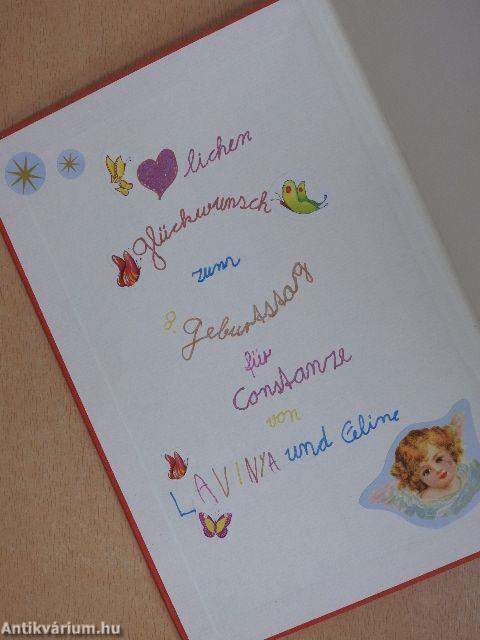 lichen
glückwunsch
zum
8. Geburtstag
für
Constanze
von
LAVINYA und Celine
Antikvárium.hu